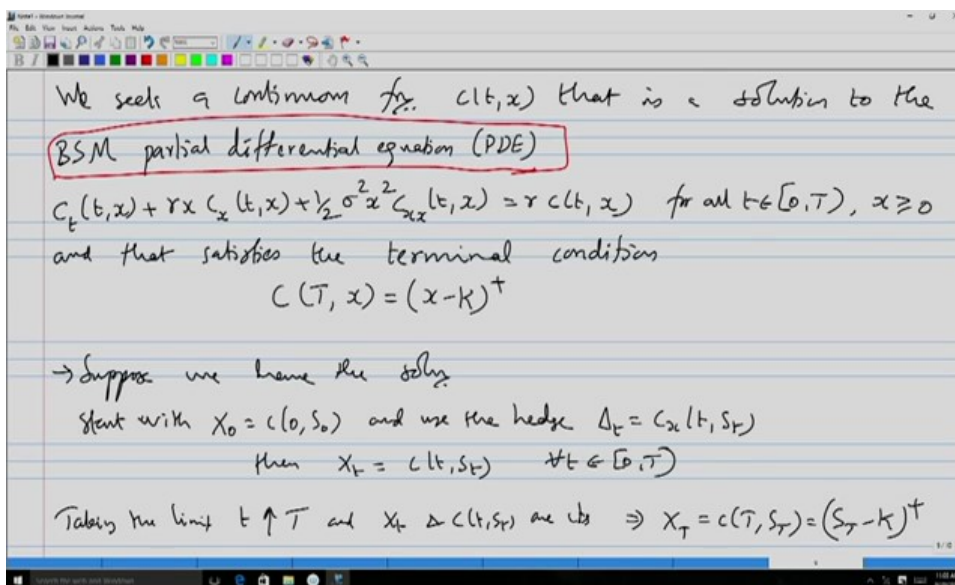 File Edit View Insert Actions Tools Help
B I
We seek a continuous fn. c(t,x) that is a solution to the
BSM partial differential equation (PDE)
C_t(t,x) + rx C_x(t,x) + ½ σ²x² C_xx(t,x) = r c(t,x) for all t∈[0,T), x≥0
and that satisfies the terminal condition
C(T,x) = (x-K)⁺
→ Suppose we have the soln
Start with X₀ = c(0,S₀) and use the hedge Δ_t = C_x(t,S_t)
then X_t = c(t,S_t) ∀t∈[0,T)
Taking the limit t↑T and X_t & c(t,S_t) are cts ⇒ X_T = c(T,S_T) = (S_T-K)⁺